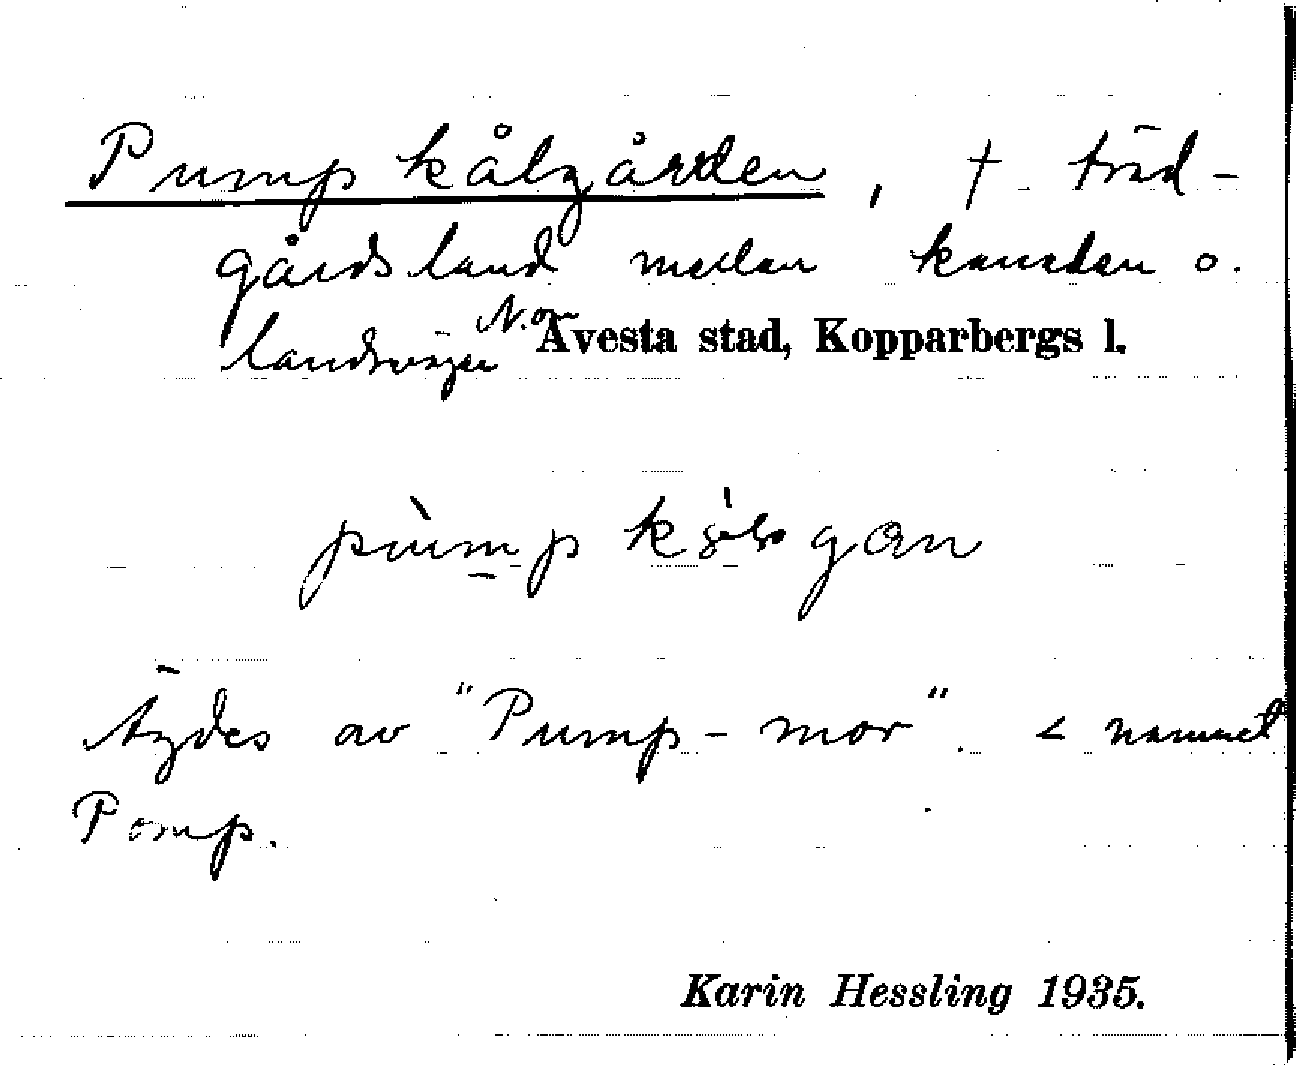 Pumpkålgården, † träd-
gårdsland mellan kanalen o.
landsvägen N. om Avesta stad, Kopparbergs l.
Ägdes av "Pump-mor". < namnet
Pomp.
Karin Hessling 1935.